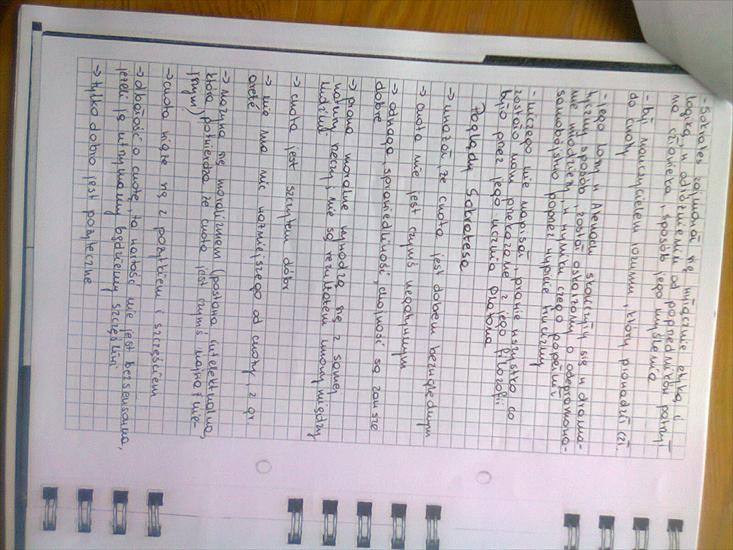 - Sokrates zajmował się wyłącznie etyką i
logiką, w odróżnieniu od poprzedników patrzył
na człowieka, sposób jego myślenia
- był nauczycielem rozumu, który prowadził
do cnoty
- Jego losy w Atenach skończyły się w drama-
tyczny sposób, został oskarżony o
młodzieży, w wyniku czego popełnił
samobójstwo poprzez wypicie trucizny
- niczego nie napisał, prawie wszystko co
zostało nam przekazane z jego filozofii
było przez jego ucznia Platona
Poglądy Sokratesa
→ uważał, że cnota jest dobrem bezwzględnym
→ cnota nie jest czymś negatywnym
→ odwaga, sprawiedliwość, są zawsze
dobre
→ prawa moralne wywodzą się z samej
natury rzeczy i nie są rezultatem umowy między
ludźmi
→ cnota jest szczytem dóbr
→ nie ma nic ważniejszego od cnoty, z gr.
areté
→ nazywa się moralizmem (postawa intelektualna,
która potwierdza że cnota jest czymś najważnie-
jszym)
→ cnota wiąże się z pożytkiem i szczęściem
→ dbałość o cnotę, tą wartość nie jest bezsensowna,
jeżeli ją utrzymamy będziemy szczęśliwi
→ tylko dobro jest pożyteczne